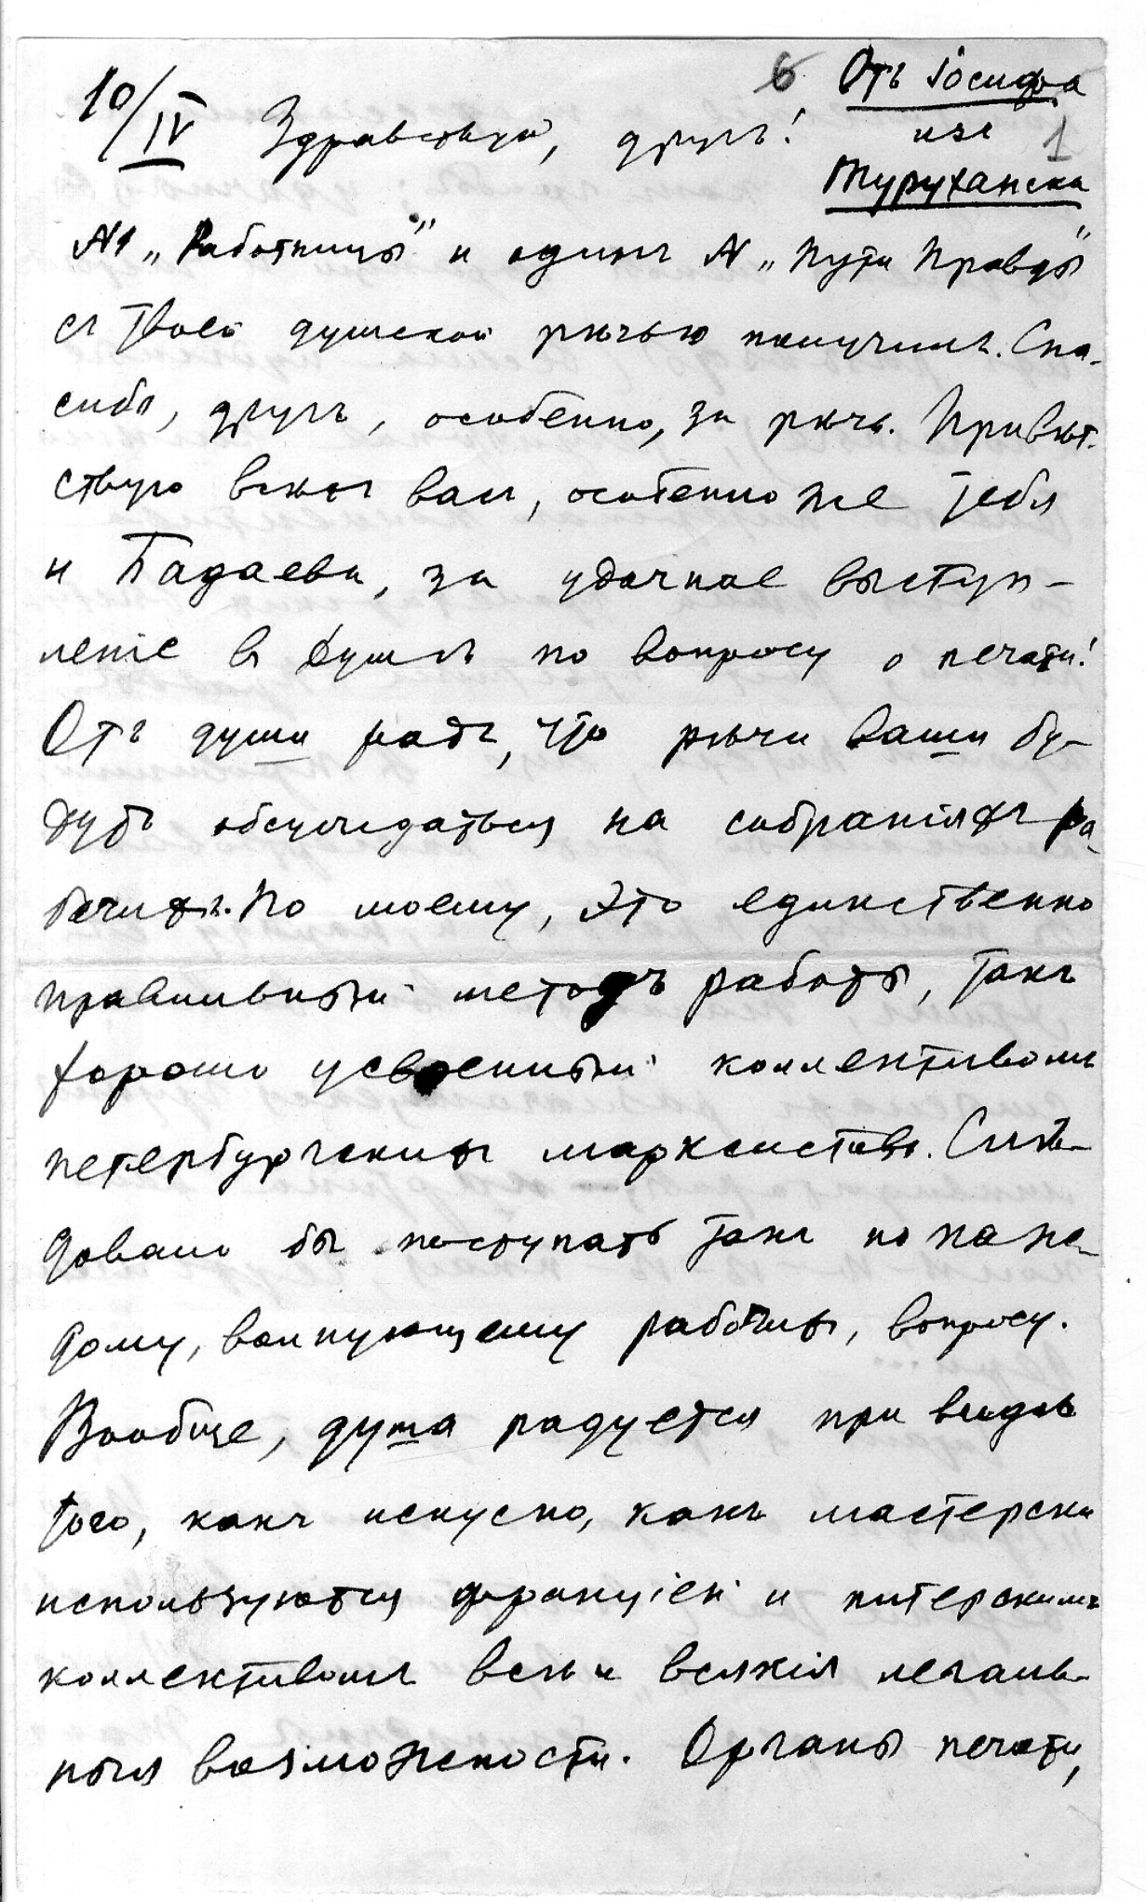 6 Отъ Iосифа
10/IV Здравствуй, другъ! изъ 1
Туруханска
N1 „Работницы" и одинъ N „Пути Правды"
съ твоей думской рѣчью получилъ. Спа-
сибо, другъ, особенно, за рѣчь. Привѣт-
ствую всѣхъ васъ, особенно же тебя
и Бадаева, за удачное выступ-
ленiе въ думѣ по вопросу о печати!
Отъ души радъ, что рѣчи ваши бу-
дутъ обсуждаться на собранiяхъ ра-
бочихъ. По моему, это единственно
правильный методъ работы, такъ
хорошо усвоенный коллективомъ
петербургскихъ марксистовъ. Слѣ-
довало бы поступать такъ по каж-
дому, волнующему рабочихъ, вопросу.
Вообще, душа радуется при видѣ
того, какъ искусно, какъ мастерски
используются фракцiей и питерскимъ
коллективомъ всѣ и всякiя легаль-
ныя возможности. Органы печати,